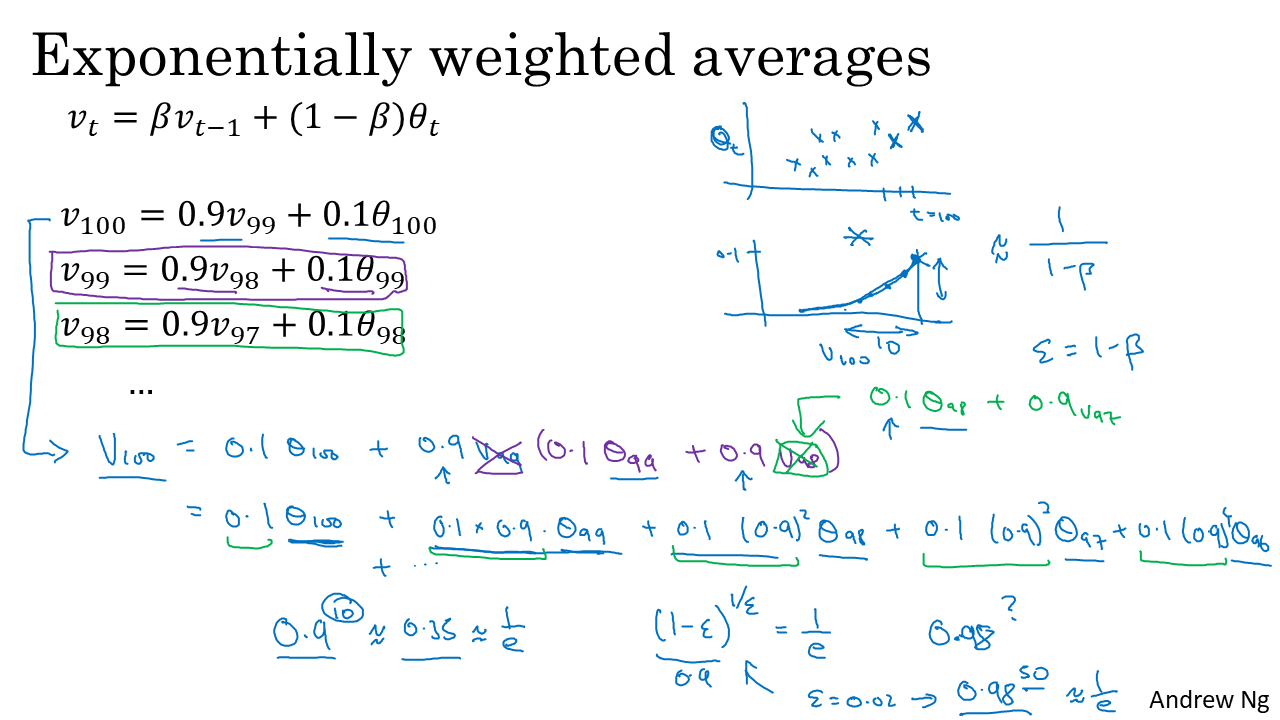 Exponentially weighted averages
v_t = βv_{t−1} + (1 − β)θ_t
θ_t
t=100
v_100 = 0.9v_99 + 0.1θ_100
v_99 = 0.9v_98 + 0.1θ_99
v_98 = 0.9v_97 + 0.1θ_98
...
0.1
10
V_100
≈ 1/(1-β)
ε = 1-β
0.1 θ_98 + 0.9 v_97
V_100 = 0.1 θ_100 + 0.9 V_99 (0.1 θ_99 + 0.9 V_98)
= 0.1 θ_100 + 0.1 × 0.9 · θ_99 + 0.1 (0.9)^2 θ_98 + 0.1 (0.9)^2 θ_97 + 0.1 (0.9)^4 θ_96
+ ...
0.9^10 ≈ 0.35 ≈ 1/e
(1-ε)^{1/ε} = 1/e
0.9
0.98^?
ε=0.02 → 0.98^50 ≈ 1/e
Andrew Ng